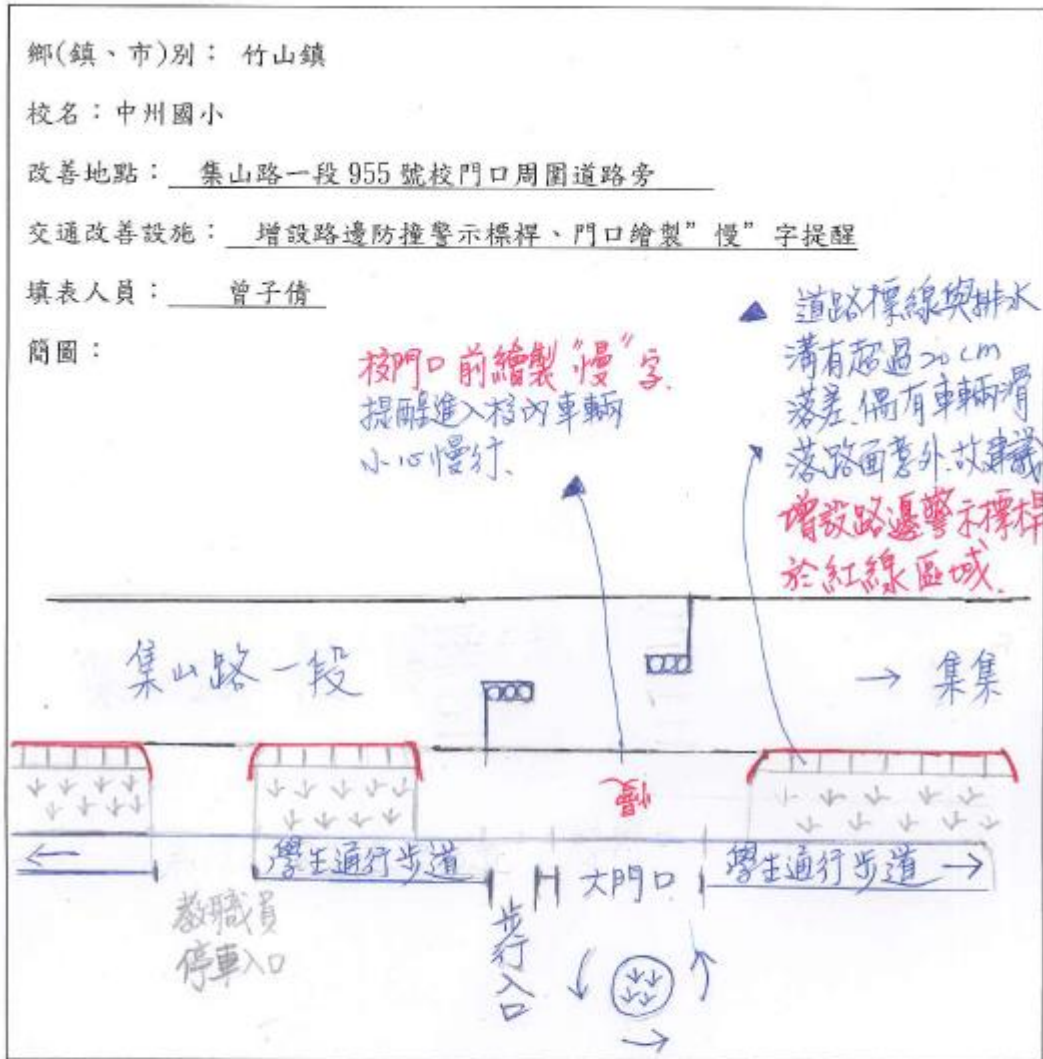 鄉(鎮、市)別： 竹山鎮
校名：中州國小
改善地點： 集山路一段 955 號校門口周圍道路旁
交通改善設施： 增設路邊防撞警示標桿、門口繪製”慢”字提醒
填表人員： 曾子倩
簡圖：
校門口前繪製"慢"字.
提醒進入校內車輛
小心慢行.
道路標線與排水
溝有超過20cm
落差.偶有車輛滑
落路面意外.故建議
增設路邊警示標桿
於紅線區域.
集山路一段
→ 集集
慢
←
學生通行步道
大門口
學生通行步道 →
教職員
停車入口
步行入口